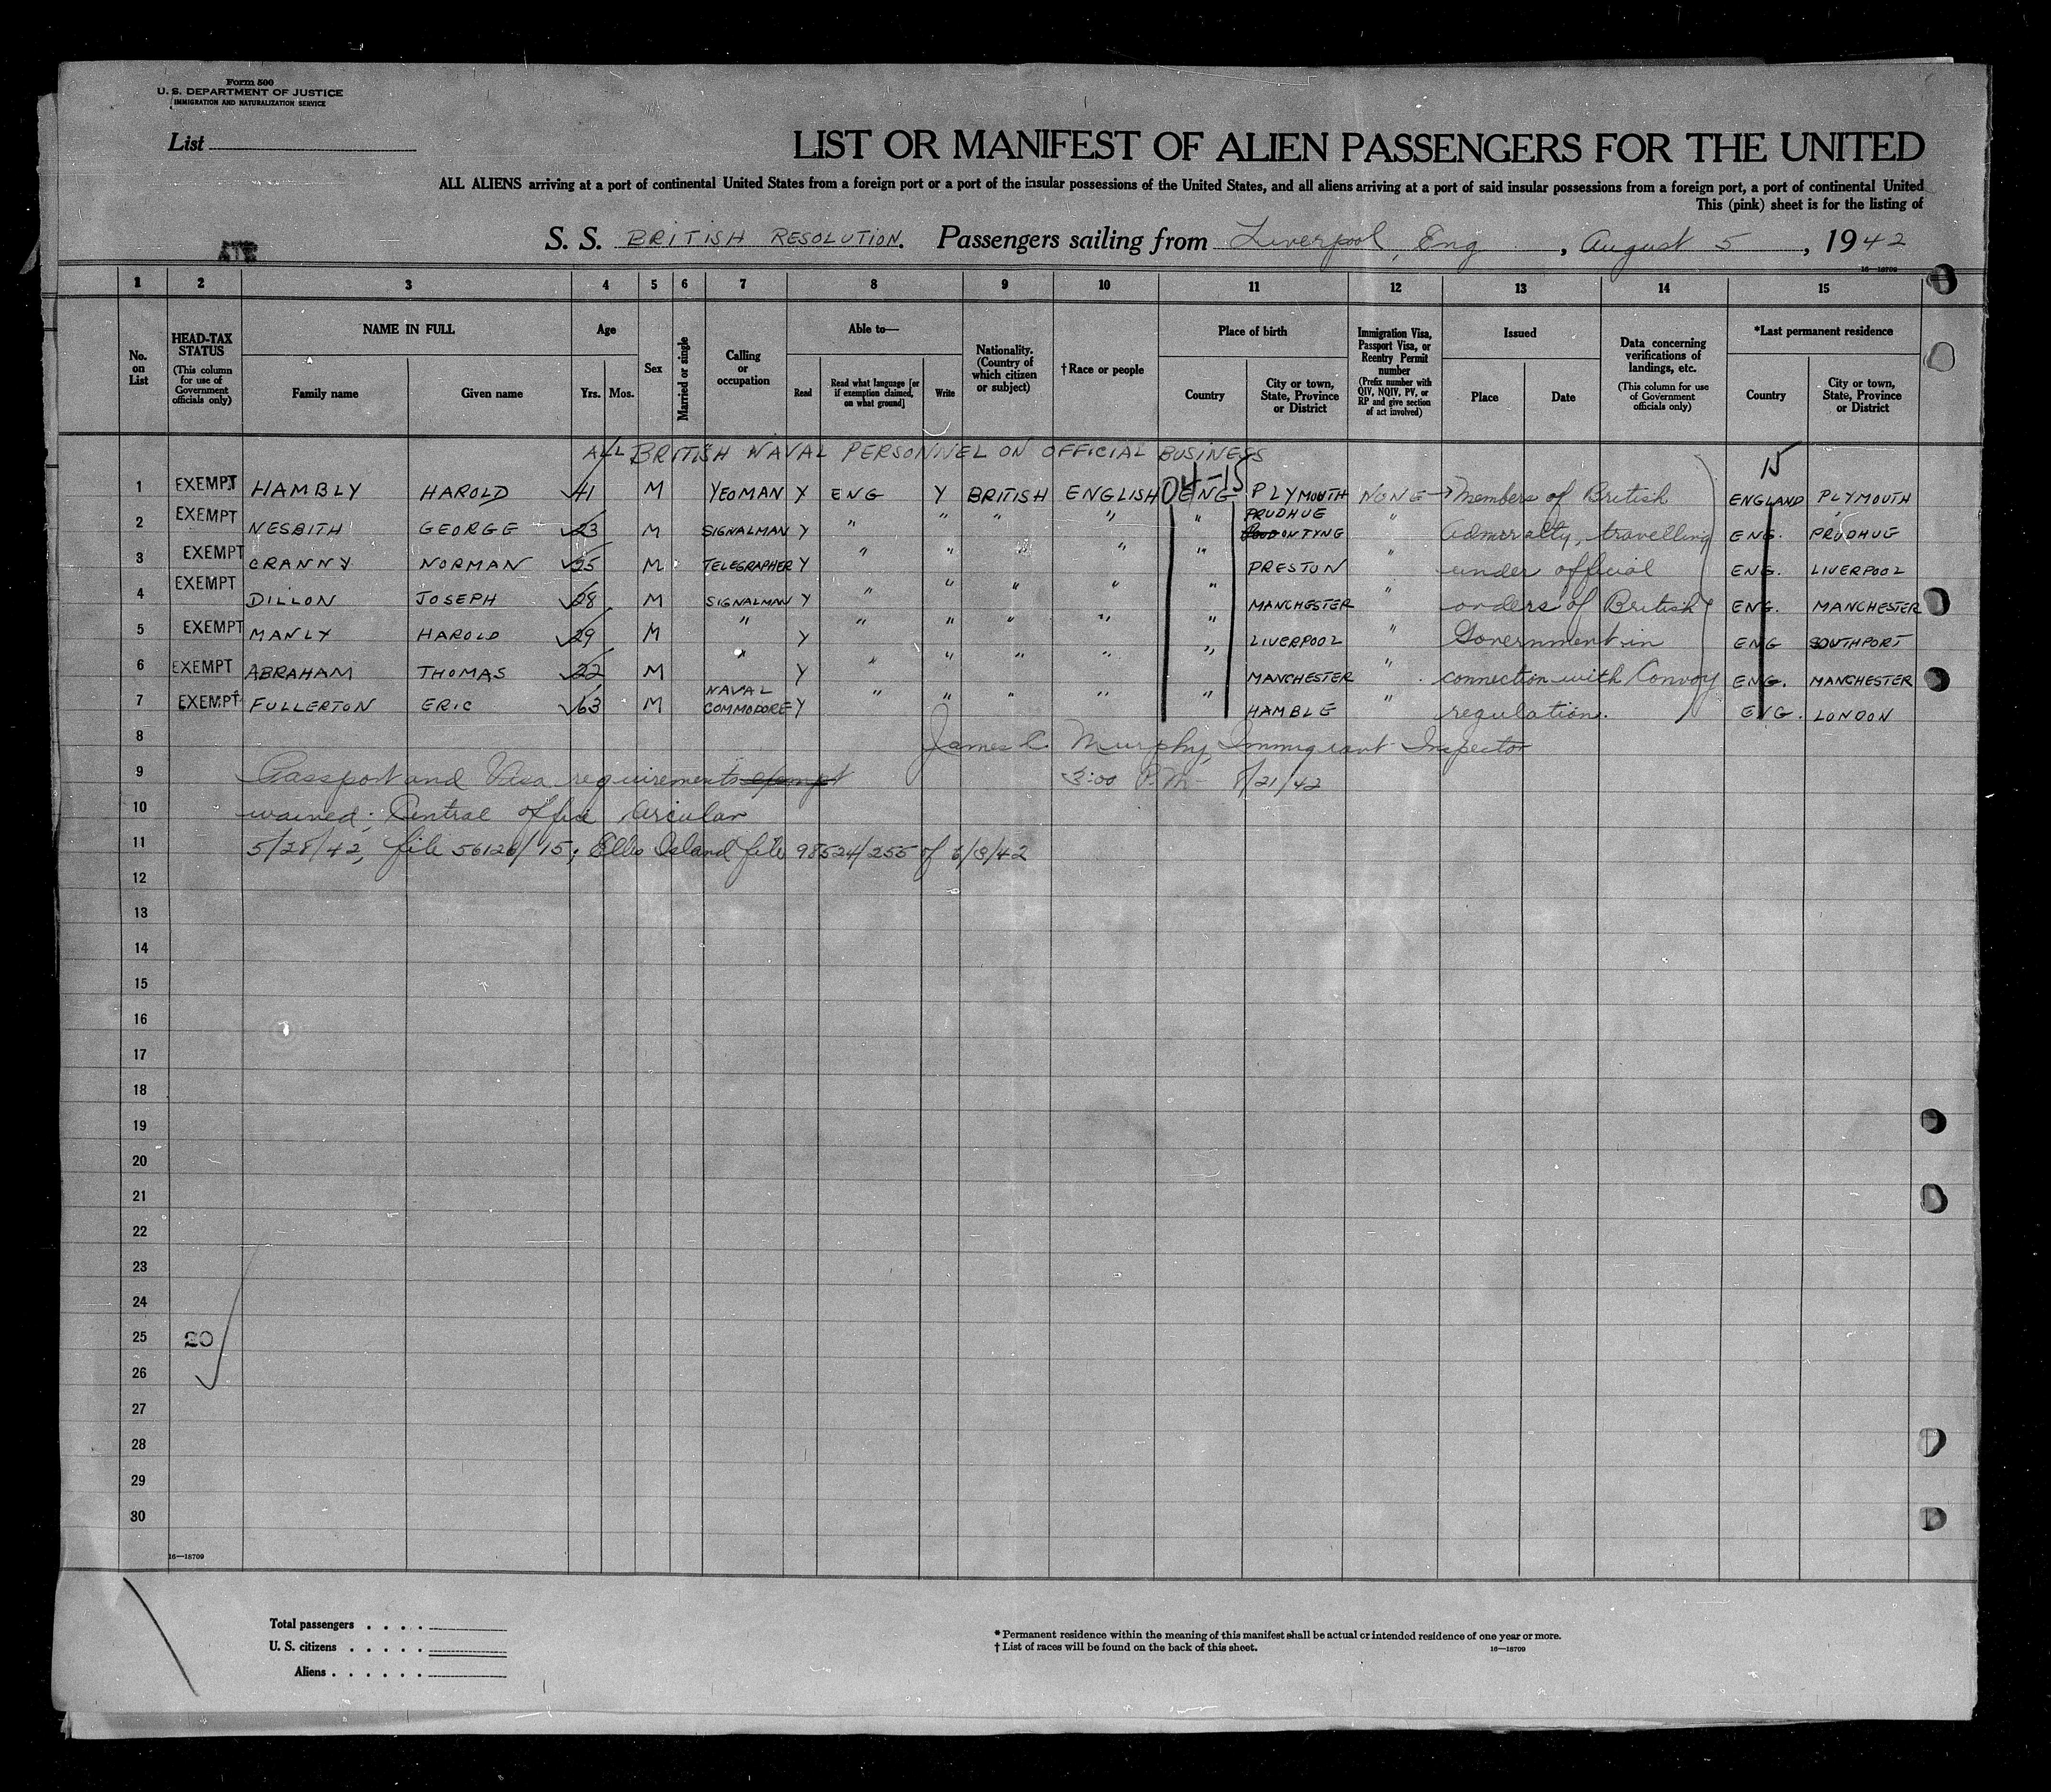 Form 500
U. S. DEPARTMENT OF JUSTICE
IMMIGRATION AND NATURALIZATION SERVICE
List
LIST OR MANIFEST OF ALIEN PASSENGERS FOR THE UNITED
ALL ALIENS arriving at a port of continental United States from a foreign port or a port of the insular possessions of the United States, and all aliens arriving at a port of said insular possessions from a foreign port, a port of continental United
This (pink) sheet is for the listing of
S. S. BRITISH RESOLUTION. Passengers sailing from Liverpool, Eng , August 5 , 1942
16—18709
1 2 3 4 5 6 7 8 9 10 11 12 13 14 15
No. on List
HEAD-TAX STATUS (This column for use of Government officials only)
NAME IN FULL Family name Given name
Age Yrs. Mos.
Sex
Married or single
Calling or occupation
Able to— Read Read what language [or if exemption claimed, on what ground] Write
Nationality. (Country of which citizen or subject)
†Race or people
Place of birth Country City or town, State, Province or District
Immigration Visa, Passport Visa, or Reentry Permit number (Prefix number with QIV, NQIV, PV, or RP and give section of act involved)
Issued Place Date
Data concerning verifications of landings, etc. (This column for use of Government officials only)
*Last permanent residence Country City or town, State, Province or District
ALL BRITISH NAVAL PERSONNEL ON OFFICIAL BUSINESS
04-15 15
1 EXEMPT HAMBLY HAROLD 41 M YEOMAN Y ENG Y BRITISH ENGLISH ENG PLYMOUTH NONE → Members of British ENGLAND PLYMOUTH
2 EXEMPT NESBITH GEORGE 23 M SIGNALMAN Y " " " " " PRUDHUE ONTYNG " Admiralty, travelling ENG. PRUDHUG
3 EXEMPT CRANNY NORMAN 25 M TELEGRAPHER Y " " " " " PRESTON " under official ENG. LIVERPOOL
4 EXEMPT DILLON JOSEPH 28 M SIGNALMAN Y " " " " " MANCHESTER " orders of British ENG. MANCHESTER
5 EXEMPT MANLY HAROLD 29 M " Y " " " " " LIVERPOOL " Government in ENG SOUTHPORT
6 EXEMPT ABRAHAM THOMAS 22 M " Y " " " " " MANCHESTER " connection with Convoy ENG. MANCHESTER
7 EXEMPT FULLERTON ERIC 63 M NAVAL COMMODORE Y " " " " " HAMBLE " regulation. ENG. LONDON
8 James C. Murphy, Immigrant Inspector
9 Passport and Visa requirements exempt 3:00 P.M. 8/21/42
10 waived; Central office circular
11 5/28/42, file 56126/15; Ellis Island file 98524/255 of 6/3/42
12
13
14
15
16
17
18
19
20
21
22
23
24
25 20
26
27
28
29
30
16—18709
Total passengers . . . .
U. S. citizens . . . . .
Aliens . . . . . .
* Permanent residence within the meaning of this manifest shall be actual or intended residence of one year or more.
† List of races will be found on the back of this sheet. 16—18709